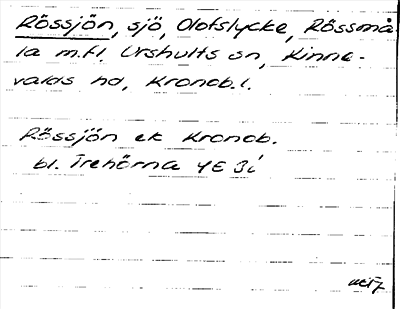 Rössjön, sjö, Olofslycke, Rössmå-
la m.fl. Urshults sn, Kinne-
valds hd, Kronob.l.
Rössjön ek Kronob.
bl. Trehörna 4E 3i